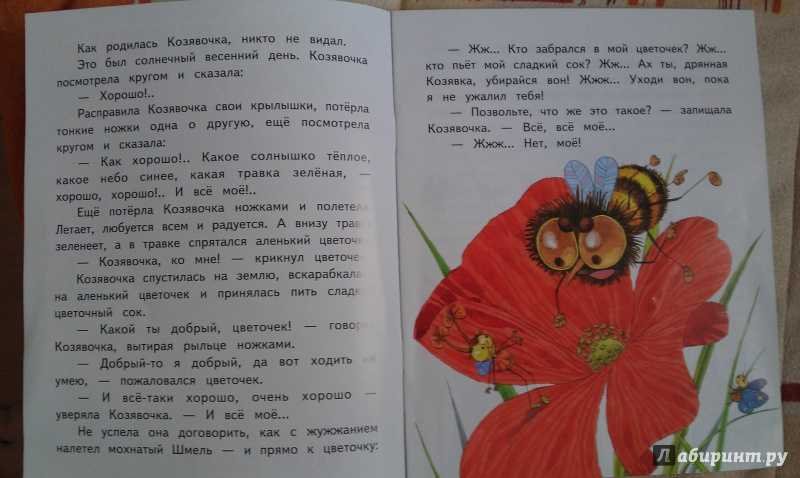 Как родилась Козявочка, никто не видал.
Это был солнечный весенний день. Козявочка
посмотрела кругом и сказала:
— Хорошо!..
Расправила Козявочка свои крылышки, потёрла
тонкие ножки одна о другую, ещё посмотрела
кругом и сказала:
— Как хорошо!.. Какое солнышко тёплое,
какое небо синее, какая травка зелёная, —
хорошо, хорошо!.. И всё моё!..
Ещё потёрла Козявочка ножками и полетела.
Летает, любуется всем и радуется. А внизу травка
зеленеет, а в травке спрятался аленький цветочек.
— Козявочка, ко мне! — крикнул цветочек.
Козявочка спустилась на землю, вскарабкалась
на аленький цветочек и принялась пить сладкий
цветочный сок.
— Какой ты добрый, цветочек! — говорит
Козявочка, вытирая рыльце ножками.
— Добрый-то я добрый, да вот ходить не
умею, — пожаловался цветочек.
— И всё-таки хорошо, очень хорошо —
уверяла Козявочка. — И всё моё...
Не успела она договорить, как с жужжанием
налетел мохнатый Шмель — и прямо к цветочку:
— Жж... Кто забрался в мой цветочек? Жж...
кто пьёт мой сладкий сок? Жж... Ах ты, дрянная
Козявка, убирайся вон! Жжж... Уходи вон, пока
я не ужалил тебя!
— Позвольте, что же это такое? — запищала
Козявочка. — Всё, всё моё...
— Жжж... Нет, моё!
Лабиринт.ру